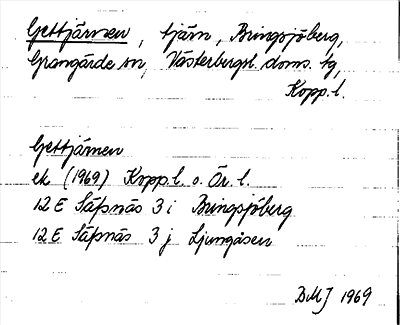 Gettjärnen, tjärn, Bringsjöberg,
Grangärde sn, Västerbergsl. doms. tg,
Kopp. l.
Gettjärnen
ek (1969) Kopp. l. o. Ör. l.
12 E Säfsnäs 3 i Bringsjöberg
12 E Säfsnäs 3 j Ljungåsen
DMJ 1969